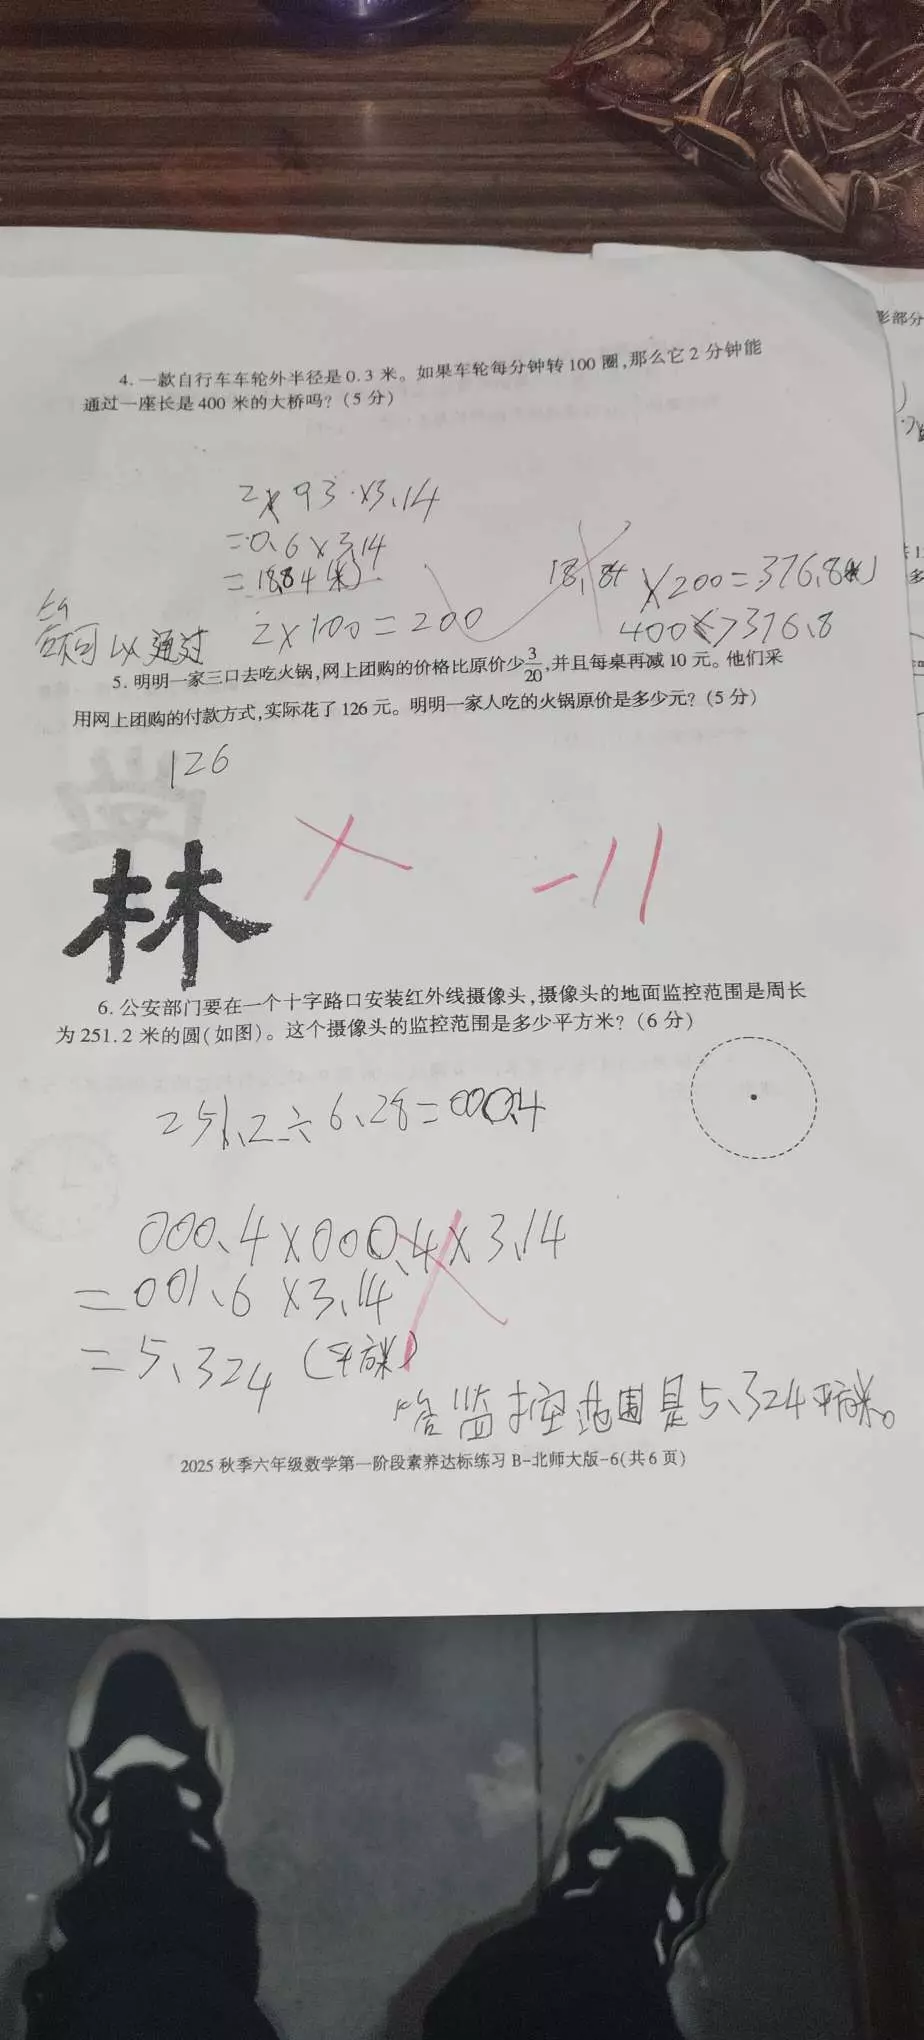 影部分
4. 一款自行车车轮外半径是0.3米。如果车轮每分钟转100圈,那么它2分钟能
通过一座长是400米的大桥吗?(5分)
2×93×3.14
=0.6×3.14
=1884(米)
2×100=200
18.84×200=376.8(米)
400>376.8
可以通过
5. 明明一家三口去吃火锅,网上团购的价格比原价少3/20,并且每桌再减10元。他们采
用网上团购的付款方式,实际花了126元。明明一家人吃的火锅原价是多少元?(5分)
126
林
-11
6. 公安部门要在一个十字路口安装红外线摄像头,摄像头的地面监控范围是周长
为251.2米的圆(如图)。这个摄像头的监控范围是多少平方米?(6分)
251.2÷6.28=000.4
000.4×000.4×3.14
=001.6×3.14
=5.324(平方米)
答监控范围是5.324平方米。
2025秋季六年级数学第一阶段素养达标练习B-北师大版-6(共6页)